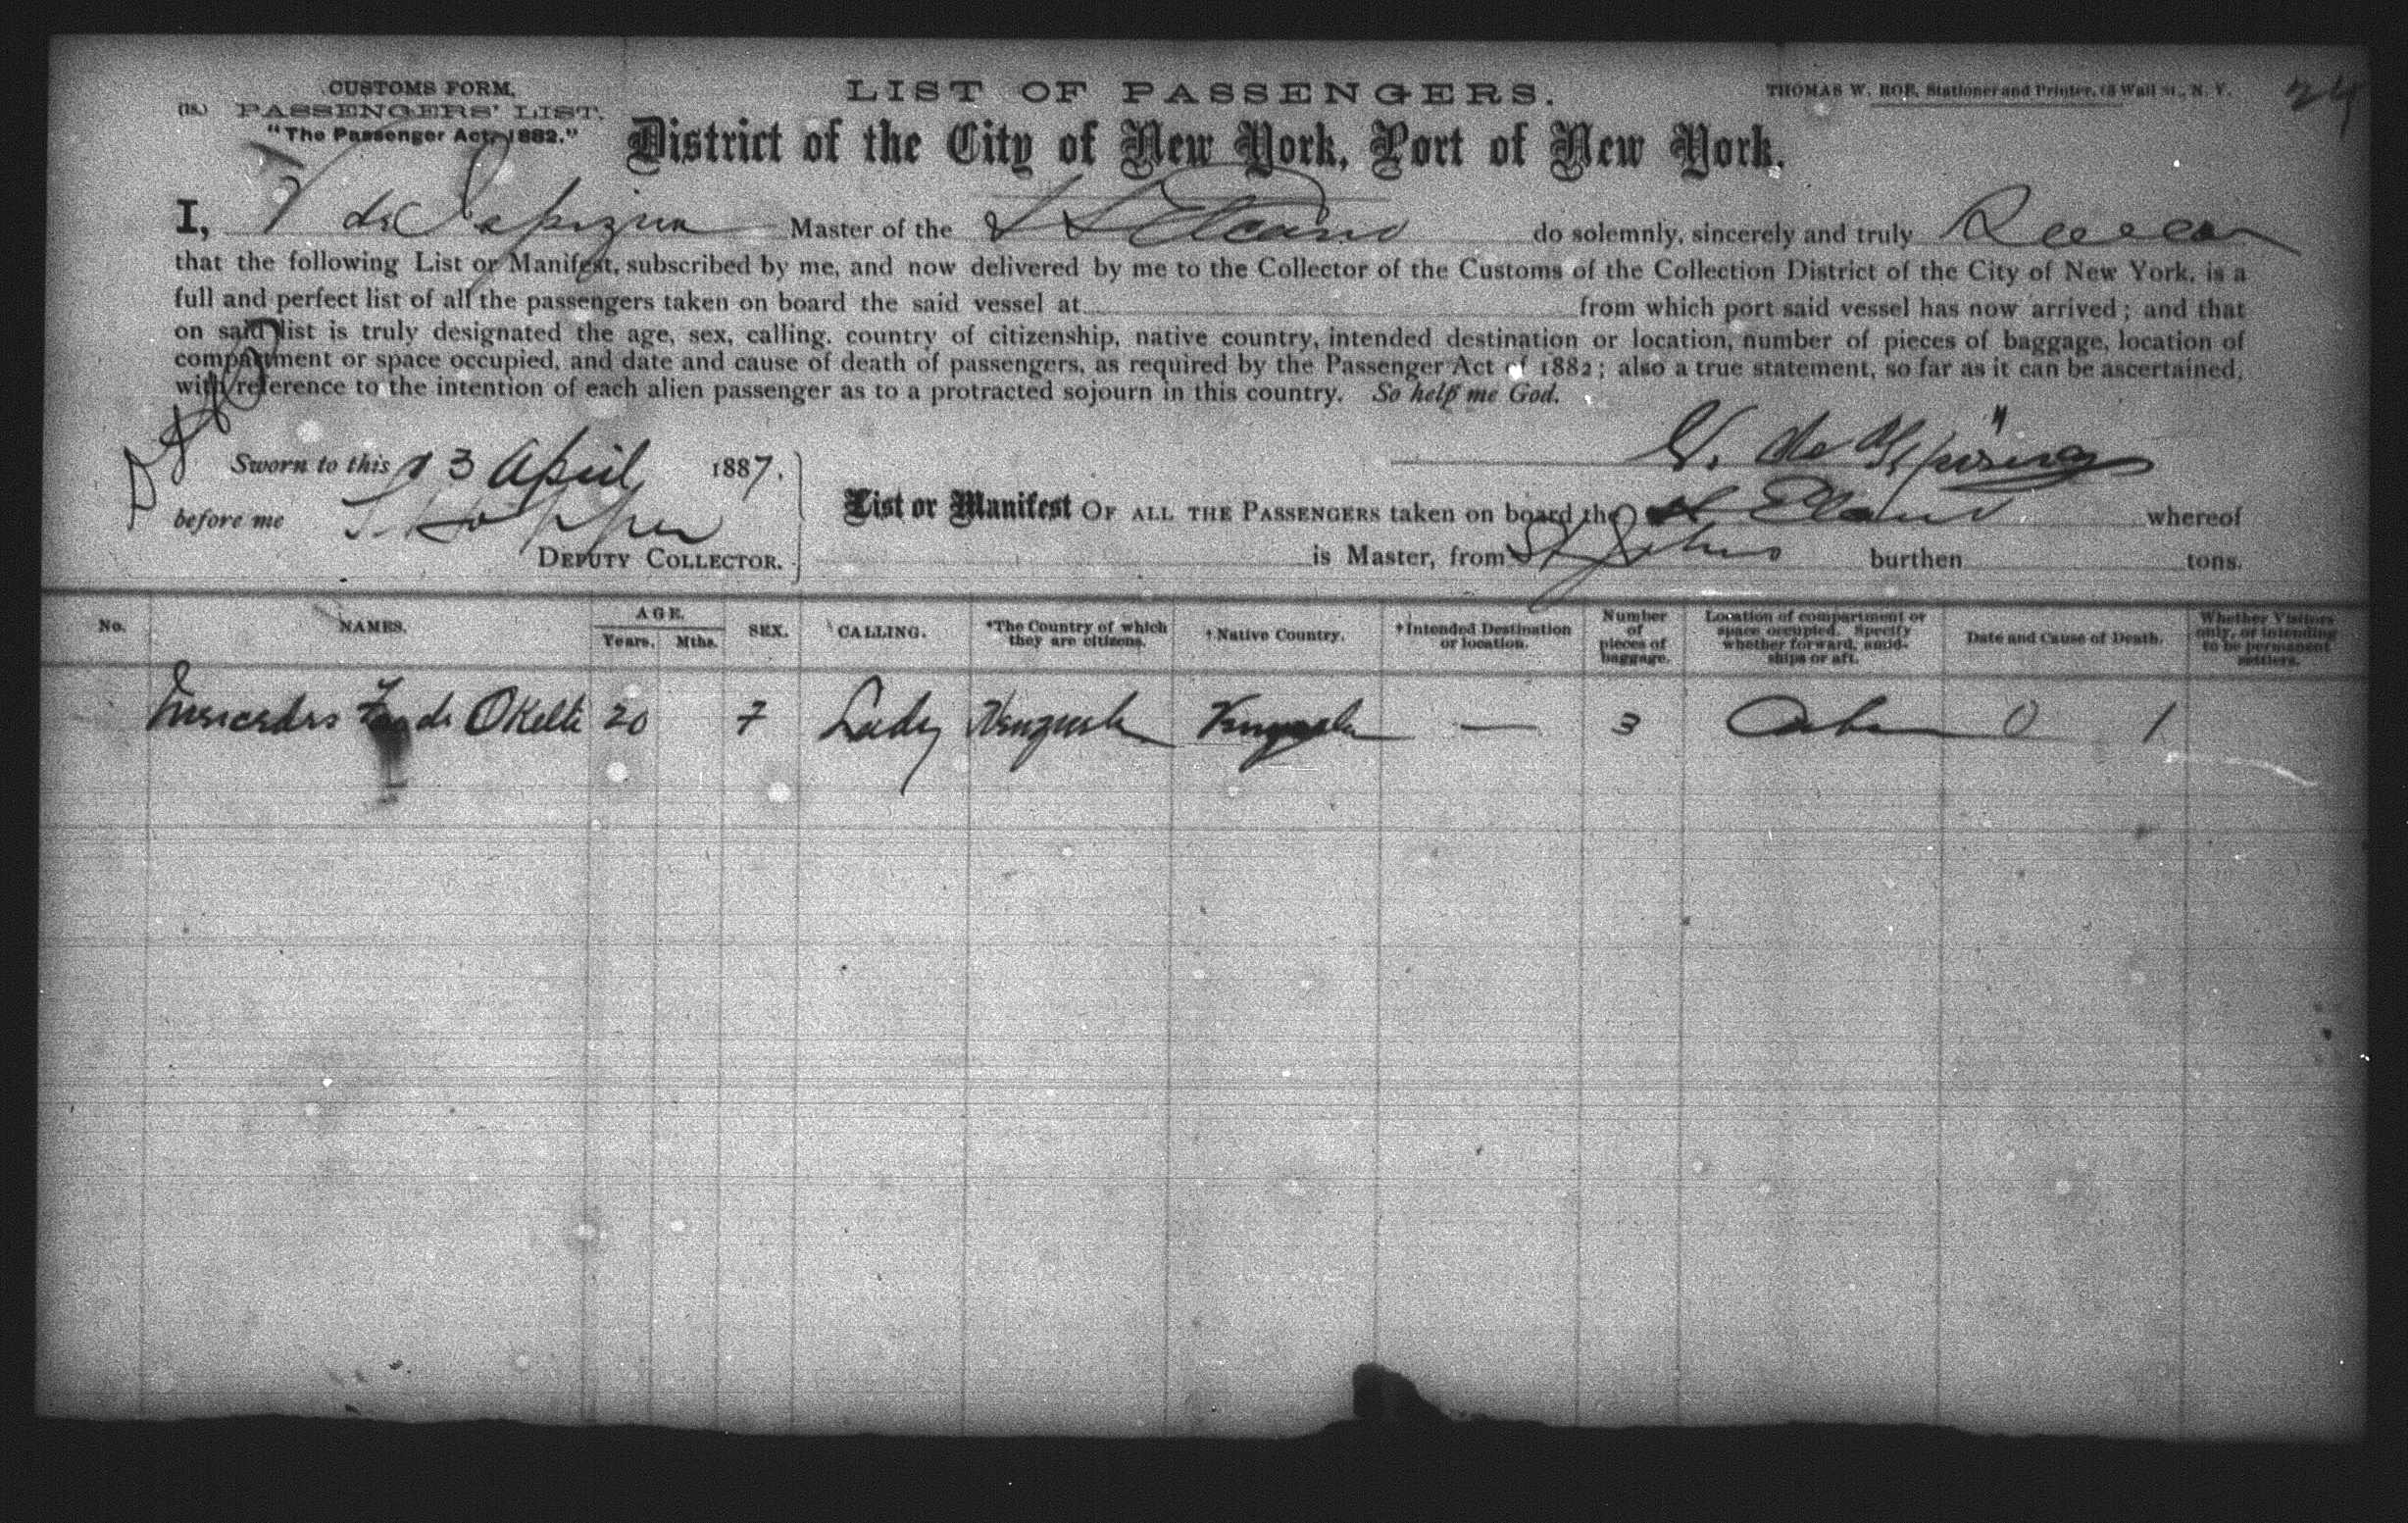 CUSTOMS FORM.
(18.) PASSENGERS' LIST.
"The Passenger Act, 1882."
LIST OF PASSENGERS.
THOMAS W. ROE, Stationer and Printer, Wall St., N. Y.
24
District of the City of New York, Port of New York.
I, V de Master of the SS Elcano do solemnly, sincerely and truly
that the following List or Manifest, subscribed by me, and now delivered by me to the Collector of the Customs of the Collection District of the City of New York, is a
full and perfect list of all the passengers taken on board the said vessel at from which port said vessel has now arrived; and that
on said list is truly designated the age, sex, calling, country of citizenship, native country, intended destination or location, number of pieces of baggage, location of
compartment or space occupied, and date and cause of death of passengers, as required by the Passenger Act of 1882; also a true statement, so far as it can be ascertained,
with reference to the intention of each alien passenger as to a protracted sojourn in this country. So help me God.
V. de
Sworn to this 13 April 1887.
before me
DEPUTY COLLECTOR.
List or Manifest OF ALL THE PASSENGERS taken on board the Elcano whereof
is Master, from St Johns burthen tons.
No. NAMES. AGE. Years. Mths. SEX. CALLING. *The Country of which they are citizens. †Native Country. †Intended Destination or location. Number of pieces of baggage. Location of compartment or space occupied. Specify whether forward, amidships or aft. Date and Cause of Death. Whether Visitors only, or intending to be permanent settlers.
Mercedes de OKelte 20 F Lady Venezuela Venezuela — 3 0 1